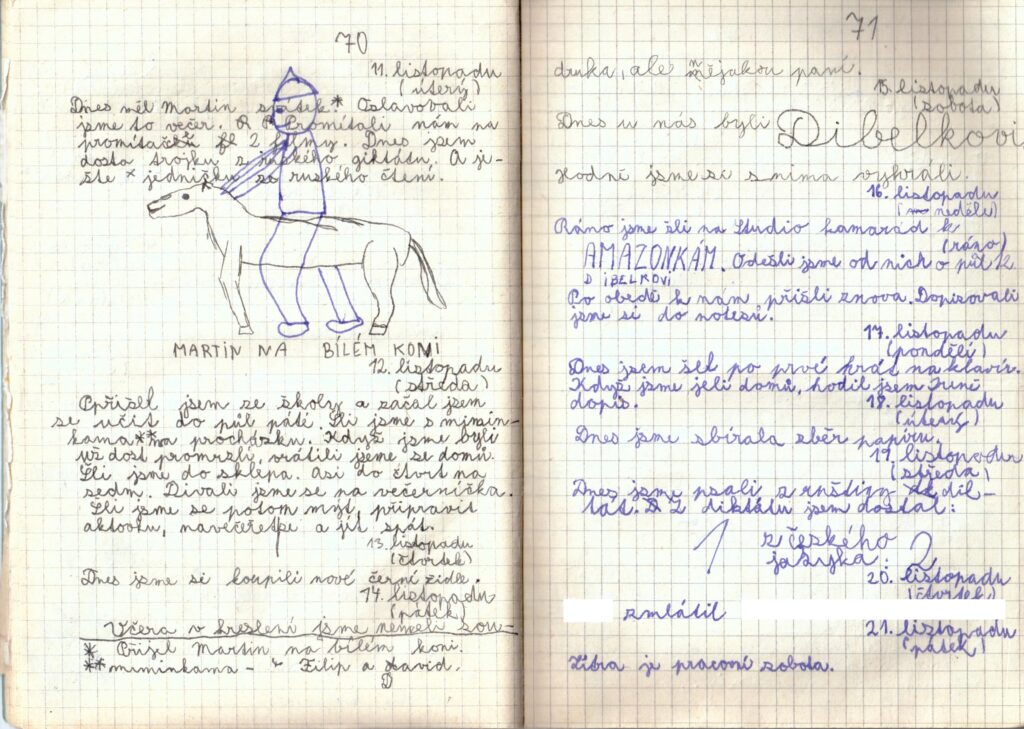 70
11. listopadu
(úterý)
Dnes měl Martin svátek.* Oslavovali
jsme to večer. Promítali nám na
promítačku 2 filmy. Dnes jsem
dostal trojku z ruského diktátu. A je-
ště * jedničku za ruského čtení.
MARTIN NA BÍLÉM KONI
12. listopadu
(středa)
Přišel jsem ze školy a začal jsem
se učit do půl páté. Šli jsme s mimin-
kama** na procházku. Když jsme byli
už dost promrzlí, vrátili jsme se domů.
Šli jsme do sklepa. Asi do čtvrt na
sedm. Dívali jsme se na večerníčka.
Šli jsme se potom mýt, připravit
aktovku, navečeřet se a jít spát.
13. listopadu
(čtvrtek)
Dnes jsme si koupili nové černí židle.
14. listopadu
(pátek)
Včera v kreslení jsme neměli sou-
* Přijel Martin na bílém koni.
** miminkama - Filip a David.
71
druka, ale nějakou paní.
15. listopadu
(sobota)
Dnes u nás byli Dibelkovi
Hodně jsme si s nima vyhráli.
16. listopadu
(neděle)
Ráno jsme šli na Studio kamarád k
(ráno)
AMAZONKÁM. Odešli jsme od nich o půl k
DIBELKOVI
Po obědě k nám přišli znova. Dopisovali
jsme si do notesů.
17. listopadu
(pondělí)
Dnes jsem šel po prvé hrát na klavír.
Když jsme jeli domů, hodil jsem Iruně
dopis.
18. listopadu
(úterý)
Dnes jsme sbírala sběr papíru.
19. listopadu
(středa)
Dnes jsme psali z ruštiny dik-
tát. Z diktátu jsem dostal:
1 z českého 2
jazyka:
20. listopadu
(čtvrtek)
zmlátil
21. listopadu
(pátek)
Zítra je pracovní sobota.